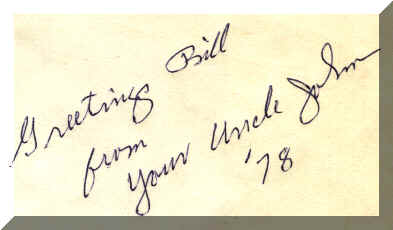 Greetings Bill
from
Your Uncle John
'78